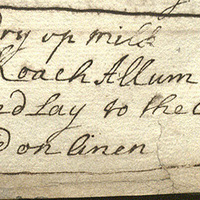 ry up milk
Roach Allum
d Lay to the
d on linen